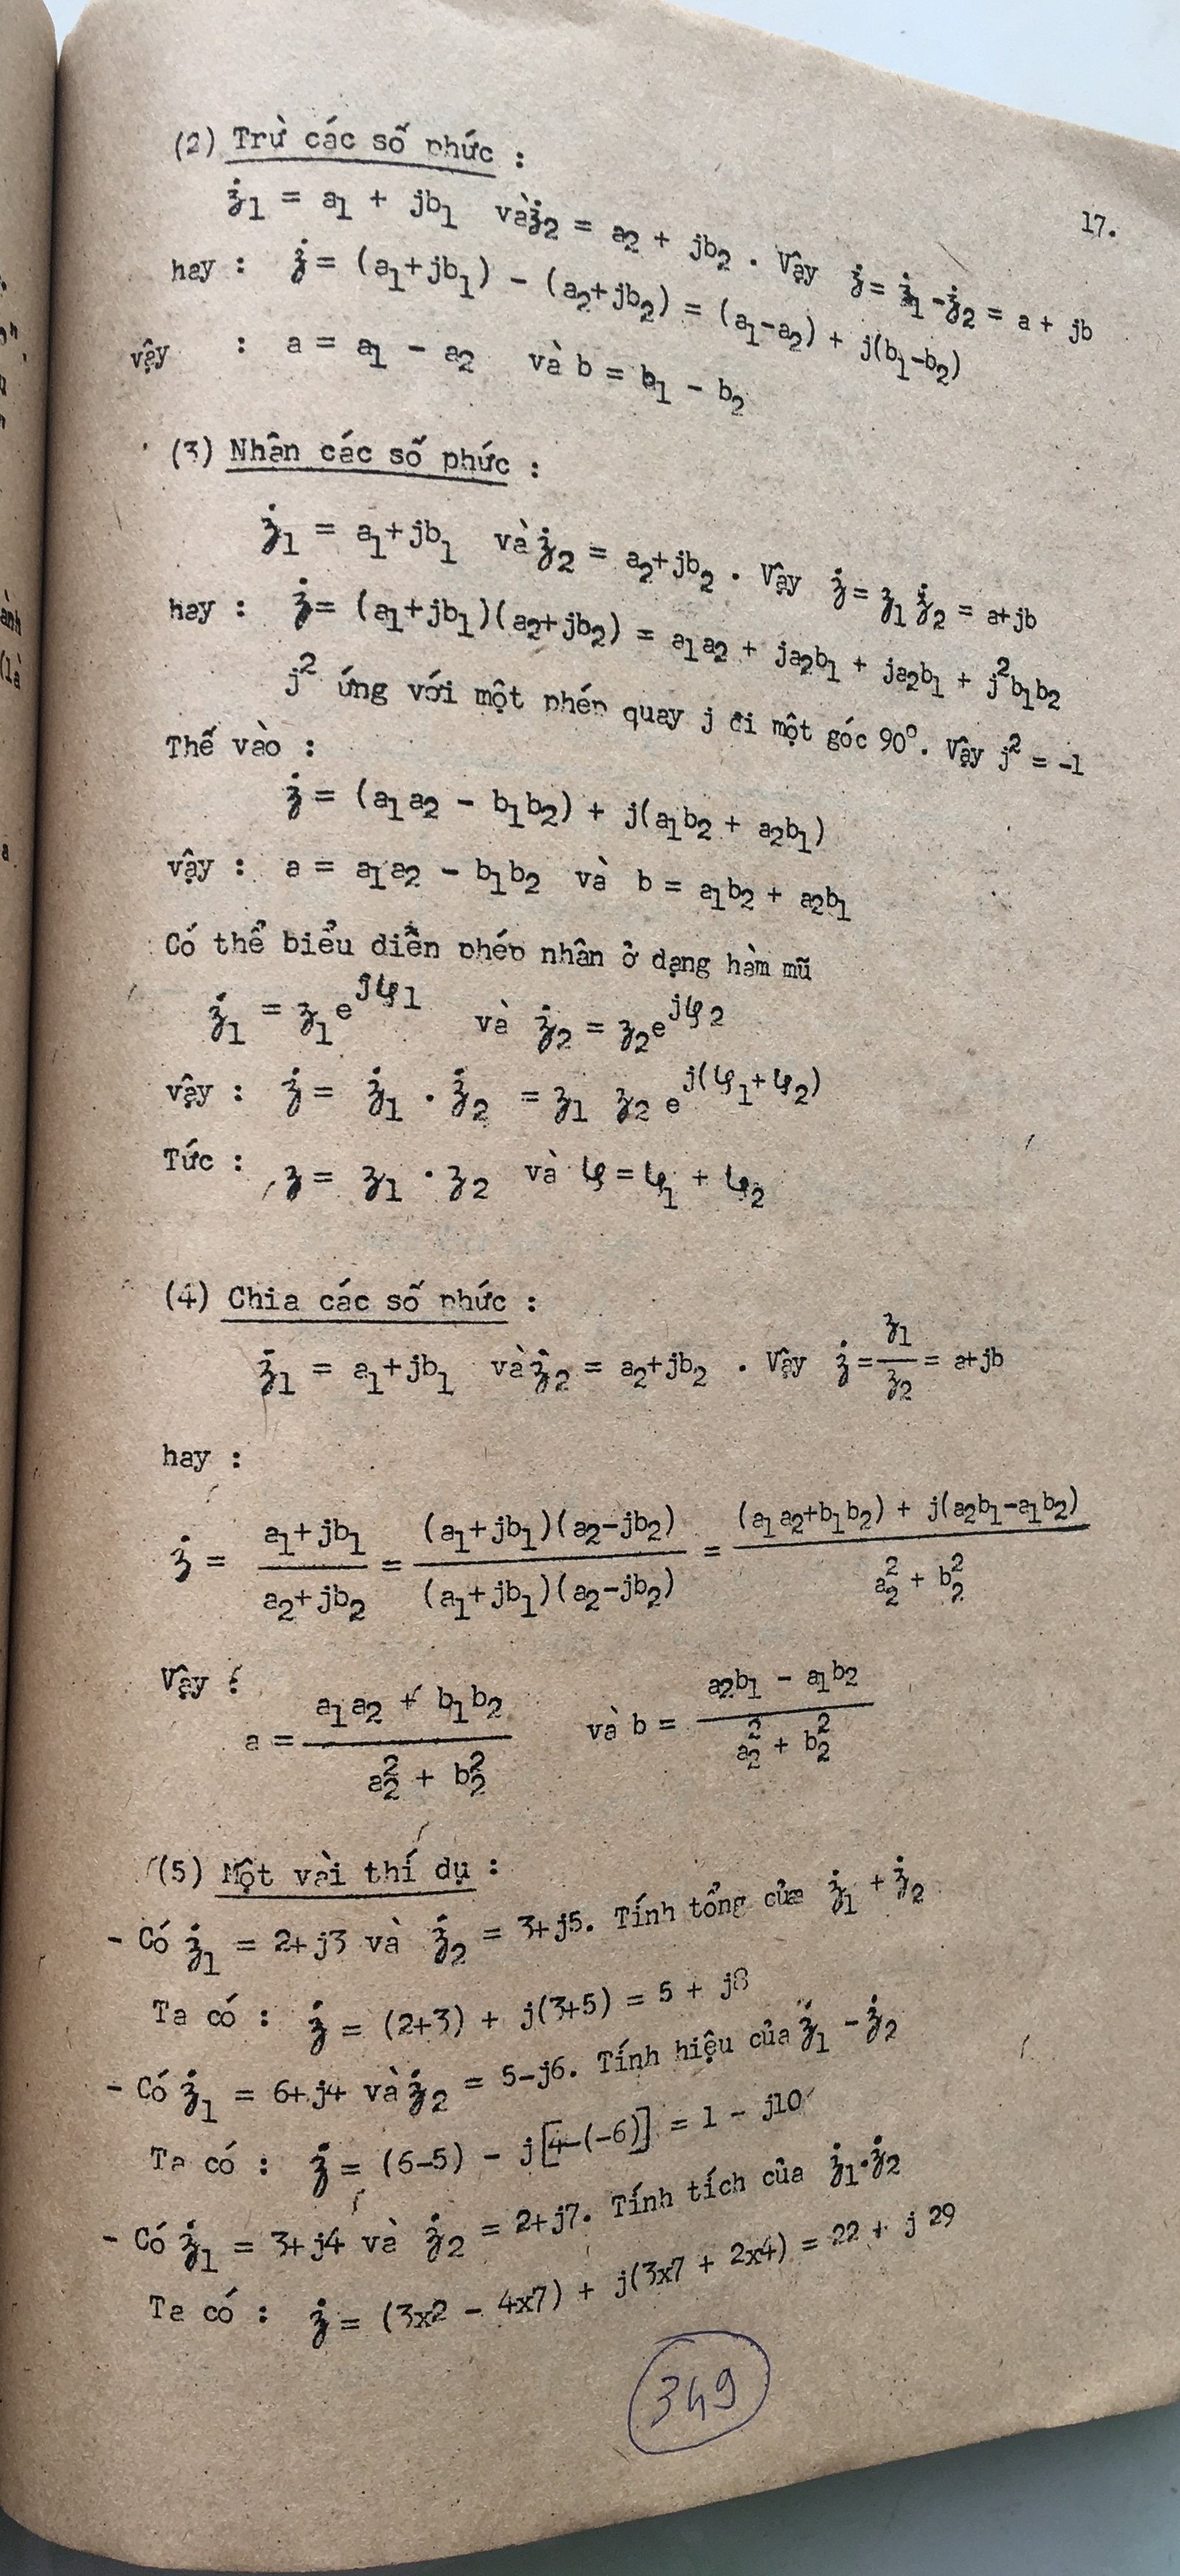 17.
(2) Trừ các số phức :
ż₁ = a₁ + jb₁ và ż₂ = a₂ + jb₂ . Vậy ż = ż₁ - ż₂ = a + jb
hay : ż = (a₁+jb₁) - (a₂+jb₂) = (a₁-a₂) + j(b₁-b₂)
vậy : a = a₁ - a₂ và b = b₁ - b₂
(3) Nhân các số phức :
ż₁ = a₁+jb₁ và ż₂ = a₂+jb₂ . Vậy ż = ʒ₁ ż₂ = a+jb
hay : ż = (a₁+jb₁)(a₂+jb₂) = a₁a₂ + ja₂b₁ + ja₂b₁ + j²b₁b₂
j² ứng với một phép quay j đi một góc 90°. Vậy j² = -1
Thế vào :
ż = (a₁a₂ - b₁b₂) + j(a₁b₂ + a₂b₁)
vậy : a = a₁a₂ - b₁b₂ và b = a₁b₂ + a₂b₁
Có thể biểu diễn phép nhân ở dạng hàm mũ
ż₁ = z₁e^jφ₁ và ż₂ = z₂e^jφ₂
vậy : ż = ż₁ . ż₂ = z₁ z₂ e^j(φ₁+φ₂)
Tức : z = z₁ . z₂ và φ = φ₁ + φ₂
(4) Chia các số phức :
ż₁ = a₁+jb₁ và ż₂ = a₂+jb₂ . Vậy ż = z₁/z₂ = a+jb
hay :
ż = (a₁+jb₁)/(a₂+jb₂) = (a₁+jb₁)(a₂-jb₂)/(a₁+jb₁)(a₂-jb₂) = ((a₁a₂+b₁b₂) + j(a₂b₁-a₁b₂))/(a₂² + b₂²)
Vậy :
a = (a₁a₂ + b₁b₂)/(a₂² + b₂²) và b = (a₂b₁ - a₁b₂)/(a₂² + b₂²)
(5) Một vài thí dụ :
- Có ż₁ = 2+j3 và ż₂ = 3+j5. Tính tổng của ż₁ + ż₂
Ta có : ż = (2+3) + j(3+5) = 5 + j8
- Có ż₁ = 6+j4 và ż₂ = 5-j6. Tính hiệu của ż₁ - ż₂
Ta có : ż = (6-5) - j[4-(-6)] = 1 - j10
- Có ż₁ = 3+j4 và ż₂ = 2+j7. Tính tích của ż₁.ż₂
Ta có : ż = (3x2 - 4x7) + j(3x7 + 2x4) = 22 + j 29
349